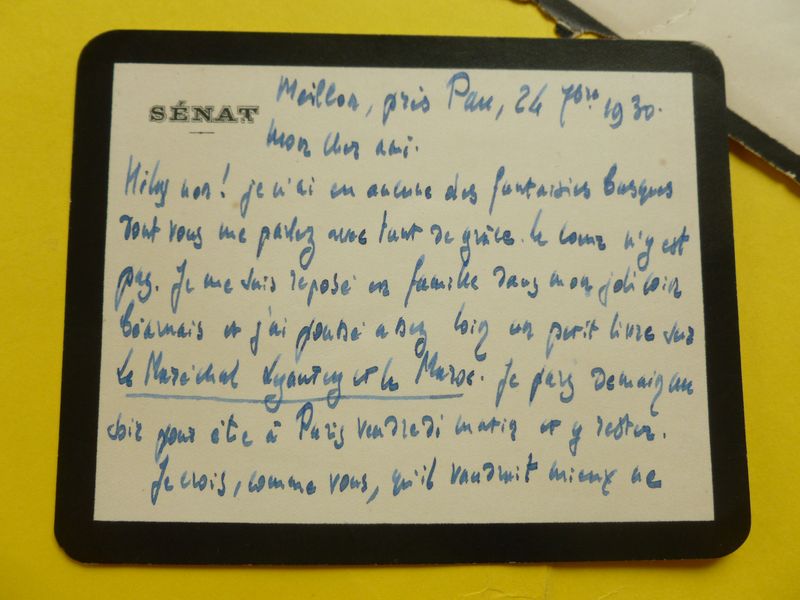 SÉNAT
Meillon, près Pau, 24 7bre 1930.
Mon cher ami.
Hélas non! je n'ai eu aucune des fantaisies basques
dont vous me parlez avec tant de grâce. Le cœur n'y est
pas. Je me suis reposé en famille dans mon joli coin
béarnais et j'ai poussé assez loin un petit livre sur
Le Maréchal Lyautey et le Maroc. Je pars demain au
soir pour être à Paris vendredi matin et y rester.
Je crois, comme vous, qu'il vaudrait mieux ne